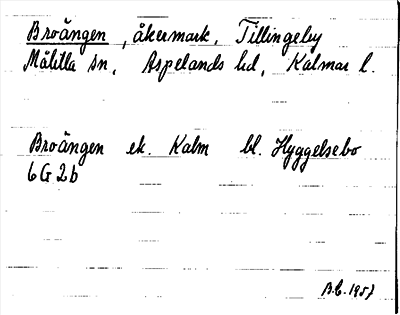 Broängen, åkermark, Tillingeby
Målilla sn, Aspelands hd, Kalmar l.
Broängen ek. Kalm bl. Hyggelsebo
6G2b
B.C. 1957